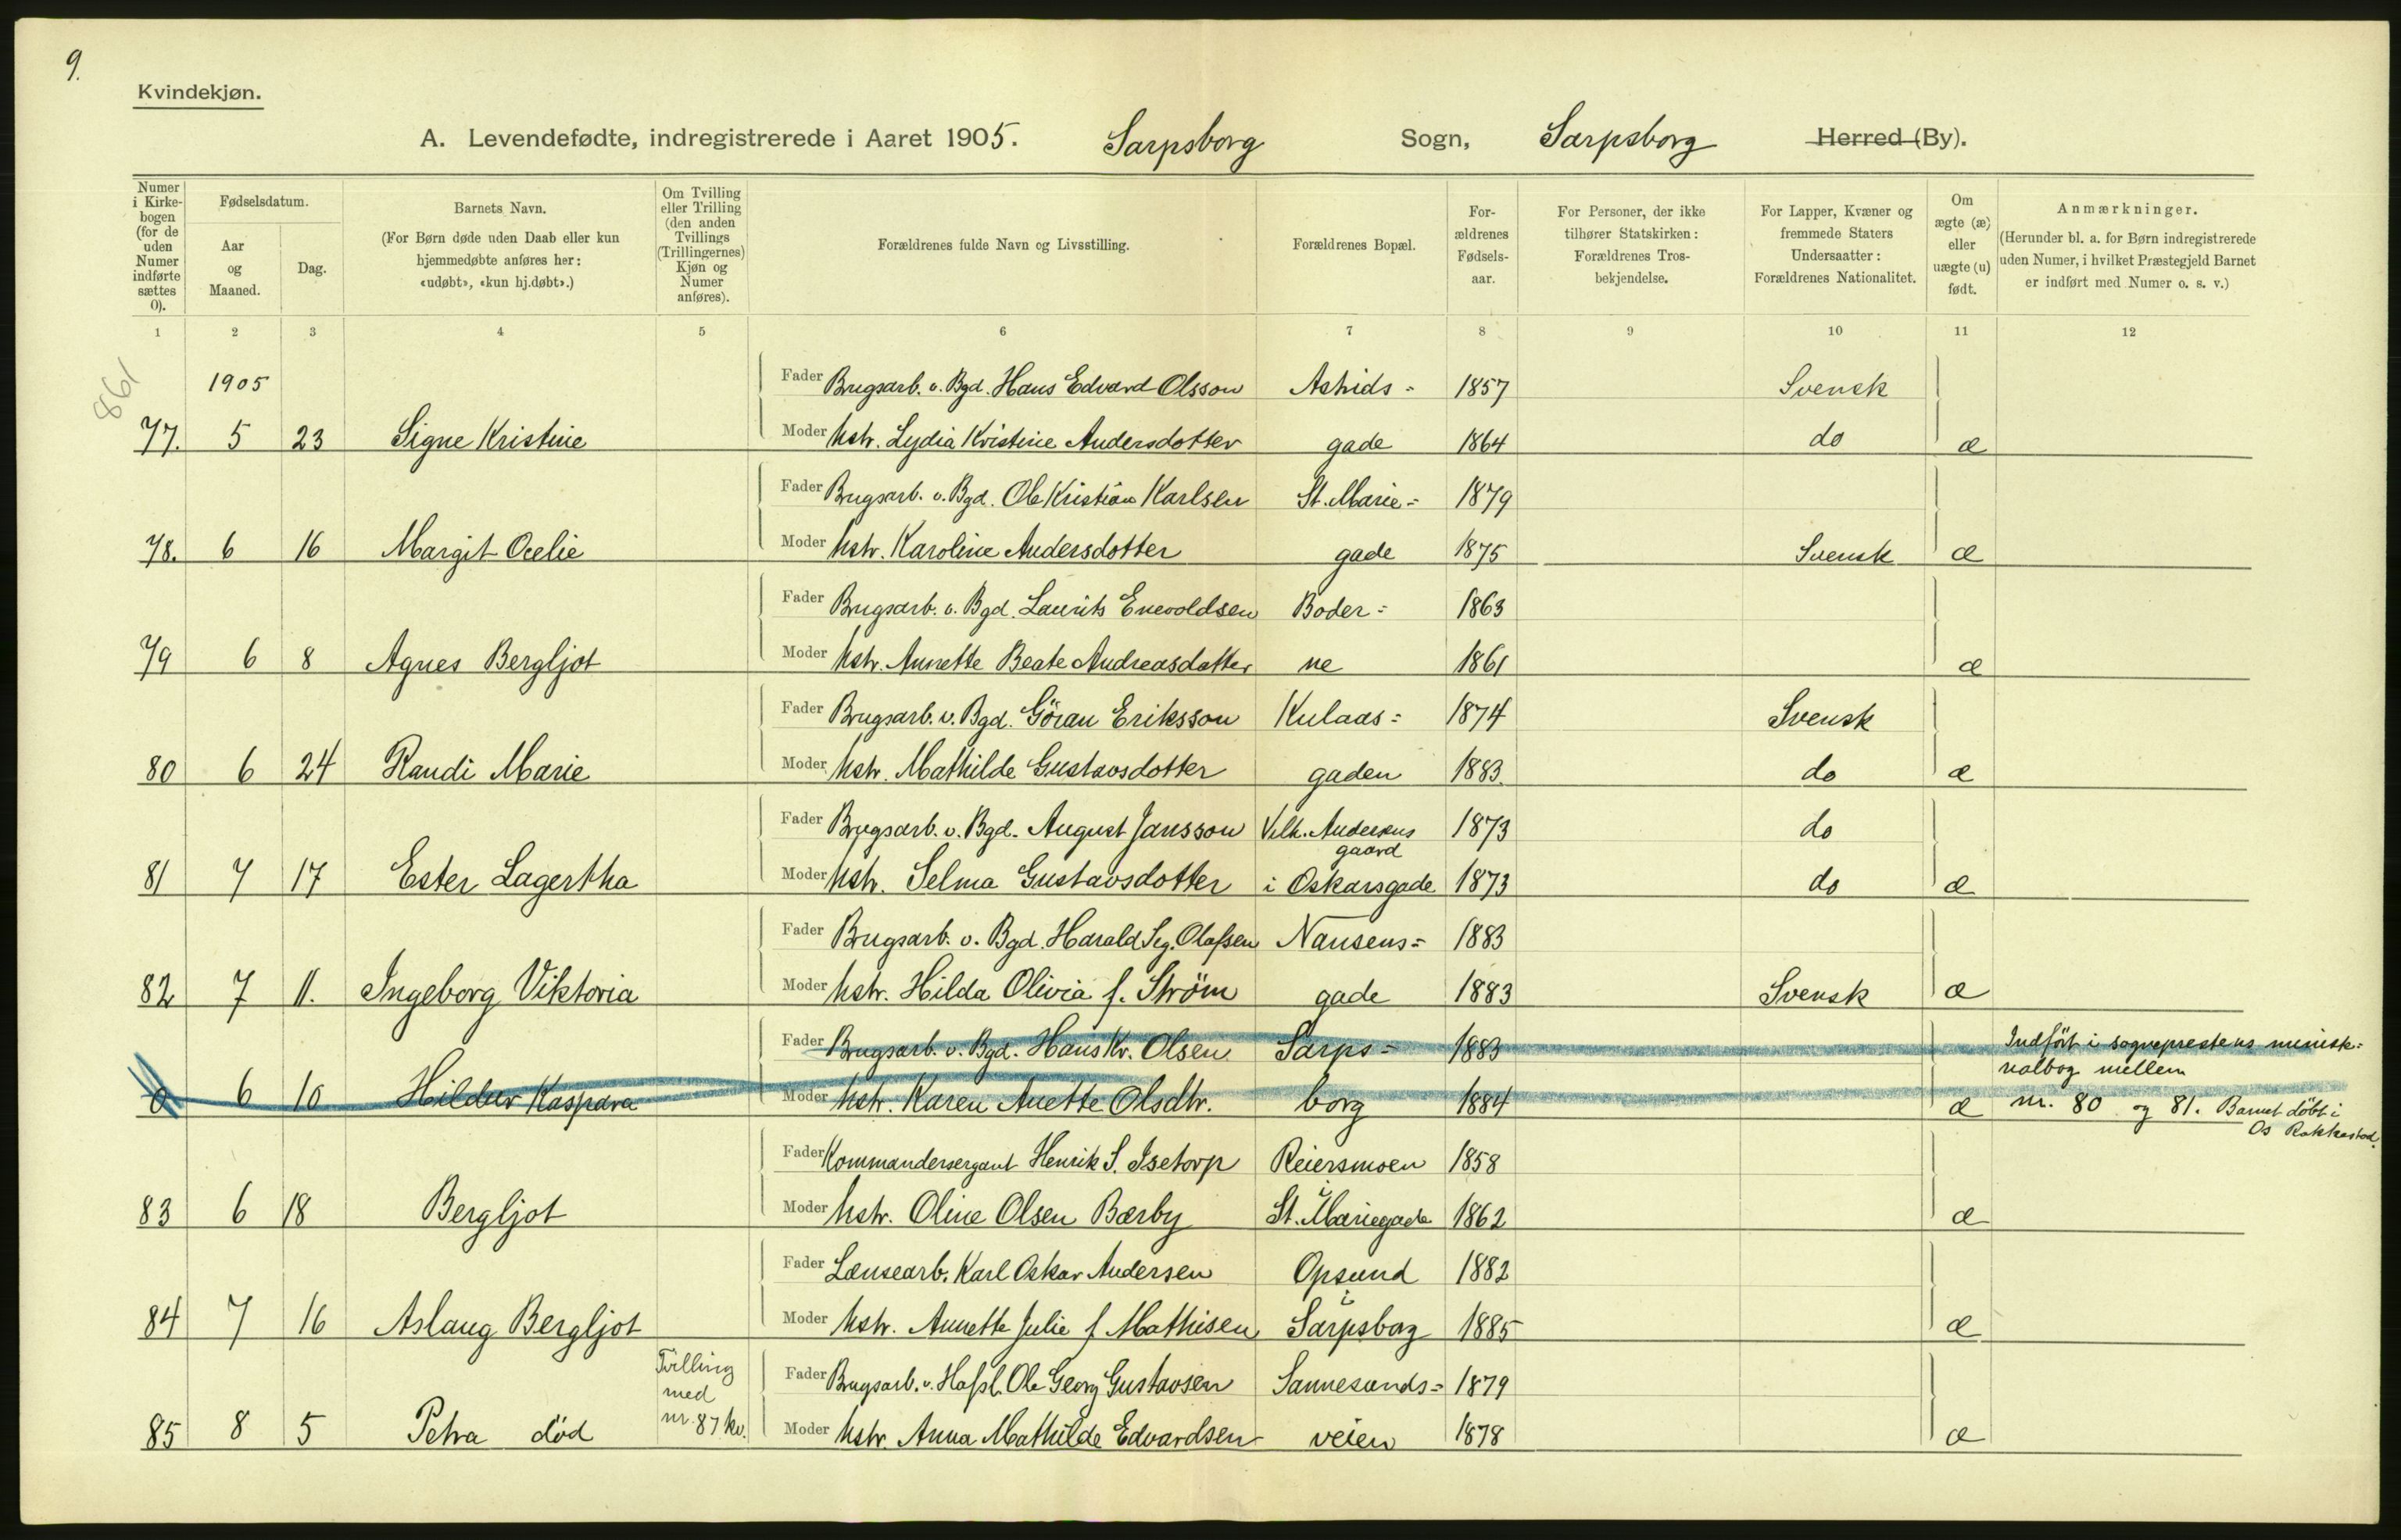 9.
Kvindekjøn.
A. Levendefødte, indregistrerede i Aaret 1905. Sarpsborg Sogn, Sarpsborg Herred (By).
Numer i Kirkebogen (for de uden Numer indførte sættes 0).
Fødselsdatum.
Aar og Maaned.
Dag.
Barnets Navn.
(For Børn døde uden Daab eller kun hjemmedøbte anføres her: «udøbt», «kun hj.døbt».)
Om Tvilling eller Trilling (den anden Tvillings (Trillingernes) Kjøn og Numer anføres).
Forældrenes fulde Navn og Livsstilling.
Forældrenes Bopæl.
For-ældrenes Fødsels-aar.
For Personer, der ikke tilhører Statskirken: Forældrenes Tros-bekjendelse.
For Lapper, Kvæner og fremmede Staters Undersaatter: Forældrenes Nationalitet.
Om ægte (æ) eller uægte (u) født.
Anmærkninger.
(Herunder bl. a. for Børn indregistrerede uden Numer, i hvilket Præstegjeld Barnet er indført med Numer o. s. v.)
1 2 3 4 5 6 7 8 9 10 11 12
861
1905 Fader Brugsarb. v. Bgd. Hans Edvard Olsson Astrids- 1857 Svensk
77. 5 23 Signe Kristine Moder Hstr. Lydia Kristine Andersdotter gade 1864 do æ
Fader Brugsarb. v. Bgd. Ole Kristian Karlsen St. Marie- 1879
78. 6 16 Margit Ocelie Moder Hstr. Karoline Andersdotter gade 1875 Svensk æ
Fader Brugsarb. v. Bgd. Laurits Enevoldsen Boder- 1863
79 6 8 Agnes Bergljot Moder Hstr. Annette Beate Andreasdatter ne 1861 æ
Fader Brugsarb. v. Bgd. Göran Eriksson Kulaas- 1874 Svensk
80 6 24 Randi Marie Moder Hstr. Mathilde Gustavsdotter gaden 1883 do æ
Fader Brugsarb. v. Bgd. August Jansson Vilh. Andersens gaard 1873 do
81 7 17 Ester Lagertha Moder Hstr. Selma Gustavsdotter i Oskarsgade 1873 do æ
Fader Brugsarb. v. Bgd. Harald Sig. Olafsen Nansens- 1883
82 7 11. Ingeborg Viktoria Moder Hstr. Hilda Olivia f. Ström gade 1883 Svensk æ
Fader Brugsarb. v. Bgd. Hans Kr. Olsen Sarps- 1883 Indført i sogneprestens minist-
rialbog mellem
0 6 10 Hildur Kaspara Moder Hstr. Karen Anette Olsdtr. borg 1884 æ nr. 80 og 81. Barnet döbt i
Os Rakkestad.
Fader Kommandersergant Henrik S. Isetorp Reiersmoen 1858
83 6 18 Bergljot Moder Hstr. Oline Olsen Bærby i St. Mariegade 1862 æ
Fader Lænsearb. Karl Oskar Andersen Opsund 1882
84 7 16 Aslaug Bergljot Moder Hstr. Annette Julie f. Mathisen i Sarpsborg 1885 æ
Tvilling med Fader Brugsarb. v. Hafsl. Ole Georg Gustavsen Sannesunds- 1879
85 8 5 Petra død nr. 87 kv. Moder Hstr. Anna Mathilde Edvardsen veien 1878 æ